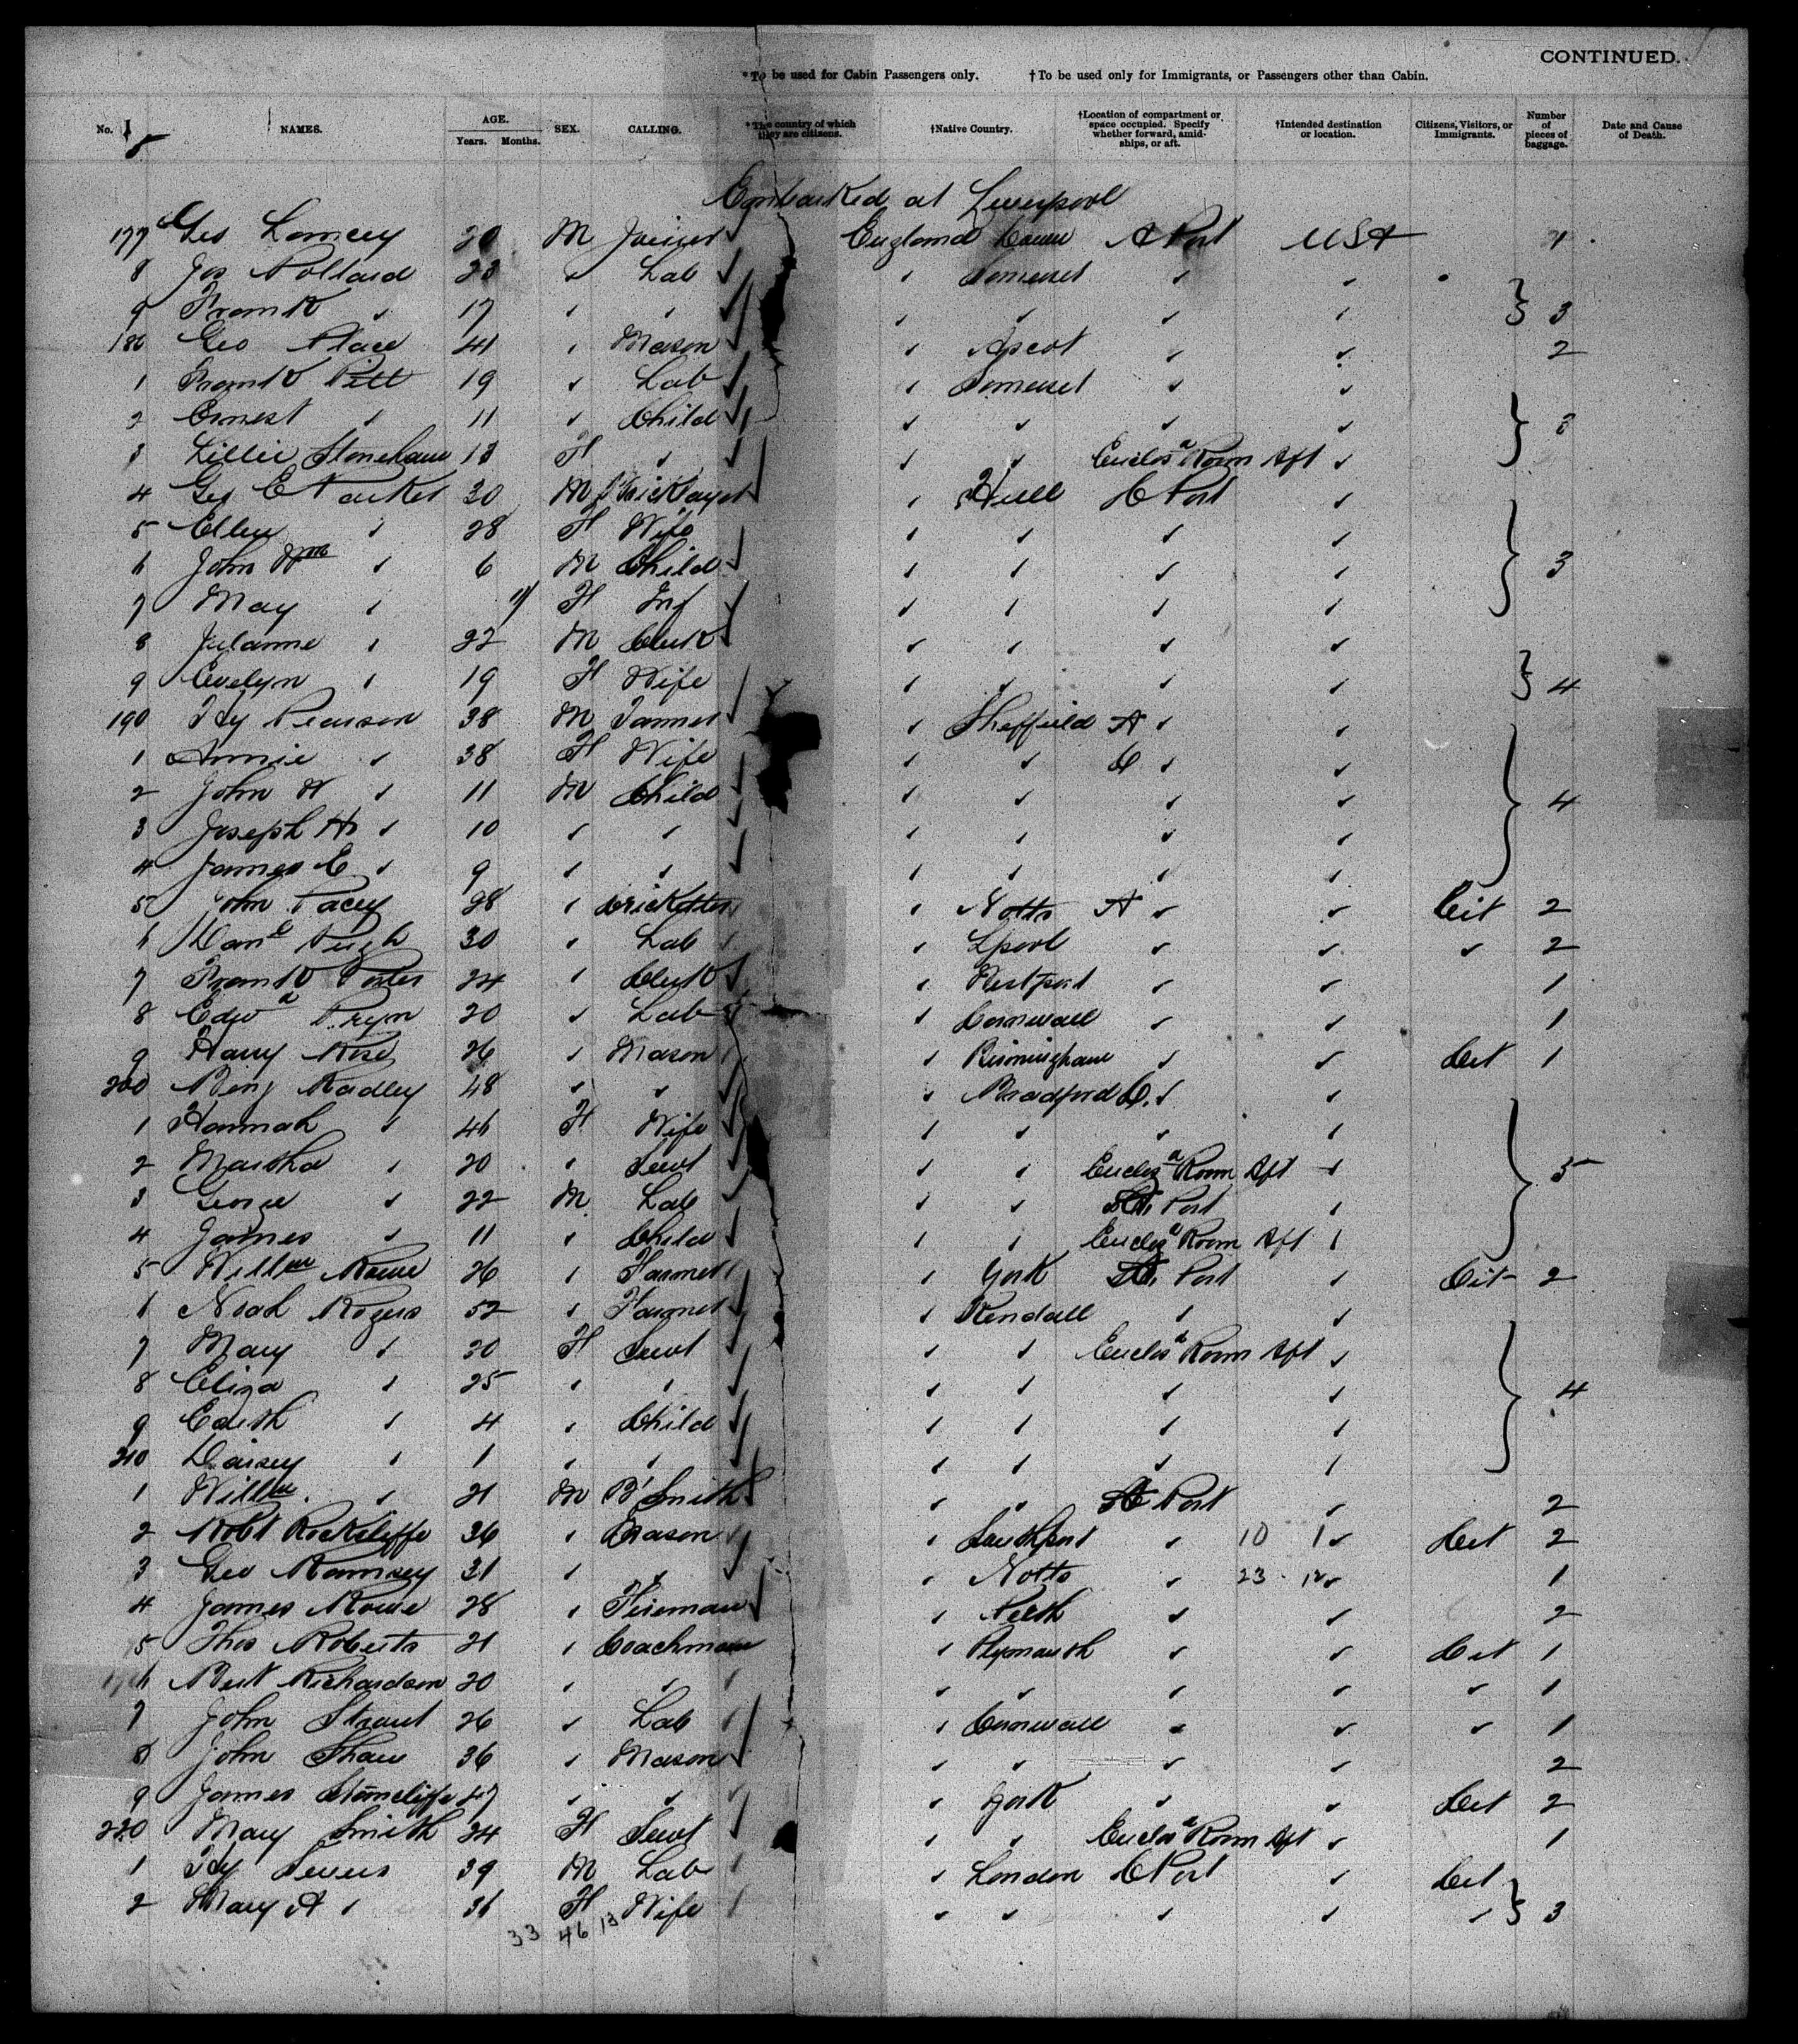 CONTINUED.
*To be used for Cabin Passengers only. †To be used only for Immigrants, or Passengers other than Cabin.
No. NAMES. AGE. Years. Months. SEX. CALLING. *The country of which they are citizens. †Native Country. †Location of compartment or space occupied. Specify whether forward, amidships, or aft. †Intended destination or location. Citizens, Visitors, or Immigrants. Number of pieces of baggage. Date and Cause of Death.
Embarked at Liverpool
177 Geo 20 M Joiner England A Port USA 1
8 Jos Pollard 23 " Lab " Somerset " "
9 Frank " 17 " " " " " " 3
180 Geo Place 41 " Mason " Ascot " " 2
1 Frank Pitt 19 " Lab " Somerset " "
2 Ernest " 11 " Child " " " " 3
3 Lillie Stoneham 13 F " " " Enclosd Room Aft "
4 Geo E Parker 30 M Bricklayer " Hull C Port "
5 Ellen " 28 F Wife " " " "
6 John Wm " 6 M Child " " " " 3
7 May " 11 F Inf " " " "
8 " 22 M Clerk " " " "
9 Evelyn " 19 F Wife " " " " 4
190 Hy Pearson 38 M Tanner " Sheffield A " "
1 Annie " 38 F Wife " " C " "
2 John W " 11 M Child " " " " 4
3 Joseph H " 10 " " " " " "
4 James E " 9 " " " " " "
5 John Pacey 28 " Cricketter " Notts A " " Cit 2
6 Danl Pugh 30 " Lab " Lpool " " " 2
7 Frank Porter 24 " Clerk " Westport " " 1
8 Edwd Pryn 20 " Lab " Cornwall " " 1
9 Harry Rose 26 " Mason " Birmingham " " Cit 1
200 Benj Radley 48 " " " Bradford C. " "
1 Hannah " 46 F Wife " " " "
2 Martha " 20 " Servt " " Enclosd Room Aft " 5
3 George " 22 M Lab " " Port "
4 James " 11 " Child " " Enclosd Room Aft "
5 Willm Rowe 26 " Farmer " York Port " Cit 2
6 Noah Rogers 52 " Farmer " Kendall " "
7 Mary " 30 F Servt " " Enclosd Room Aft "
8 Eliza " 25 " " " " " " 4
9 Edith " 4 " Child " " " "
210 Daisey " 1 " " " " " "
1 Willm " 21 M B'Smith " " A Port " 2
2 Robt Rockcliffe 36 " Mason " Southport " 10 1 " Cit 2
3 Geo Ramsey 31 " " " Notts " 23 12 " 1
4 James Rowe 28 " Fireman " Perth " " 2
5 Thos Roberts 21 " Coachman " Plymouth " " Cit 1
6 Bert Richardson 20 " " " " " " " 1
7 John 26 " Lab " Cornwall " " " 1
8 John Shaw 36 " Mason " " " " 2
9 James Stancliffe 47 " " " York " " Cit 2
220 Mary Smith 24 F Servt " " Enclosd Room Aft " 1
1 Hy 39 M Lab " London C Port " Cit
2 Mary A " 36 F Wife " " " " " 3
33 46 13